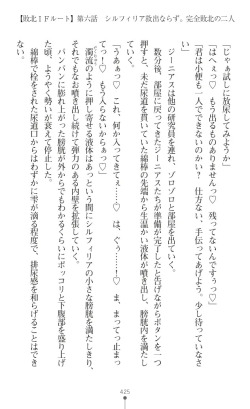 【敗北ＩＦルート】第六話　シルフィリア救出ならず。完全敗北の二人
「じゃあ試しに放尿してみようか」
「はへぇっ♡　もう出るものがぁっ♡　残ってないんですぅっ♡」
「君は小便も一人で出来ないのかね？　仕方ない、手伝ってあげよう。少し待っていなさい」
　ジーニアスは他の研究員を連れ、ゾロゾロと部屋を出ていく。
　数分後、部屋に戻ってきたジーニアスたちが準備が完了したと告げながらボタンを一つ
押すと、未だ尿道に
綿棒の先端から生温かい液体が噴き出し、膀胱内を満
たしていく。
「うああっ♡　これ、何か入ってきてぇ……♡　は、ぐぅ……！♡
もう入らないからぁっ♡」
　濁流のように押し寄せる液体はあっという間にシルフィリアの小さな膀胱を満たしきり、
それでもなお噴き出し続けて弾力のある内壁を拡張していく。
　パンパンに怒れ上がった膀胱が外からでもわかるくらいにポッコリと下腹部を盛り上げ
た頃、ようやく勢いが衰えて停止した。
　綿棒で栓をされた尿道口からはわずかに雫が滴る程度で、排尿感を和らげることはでき
425